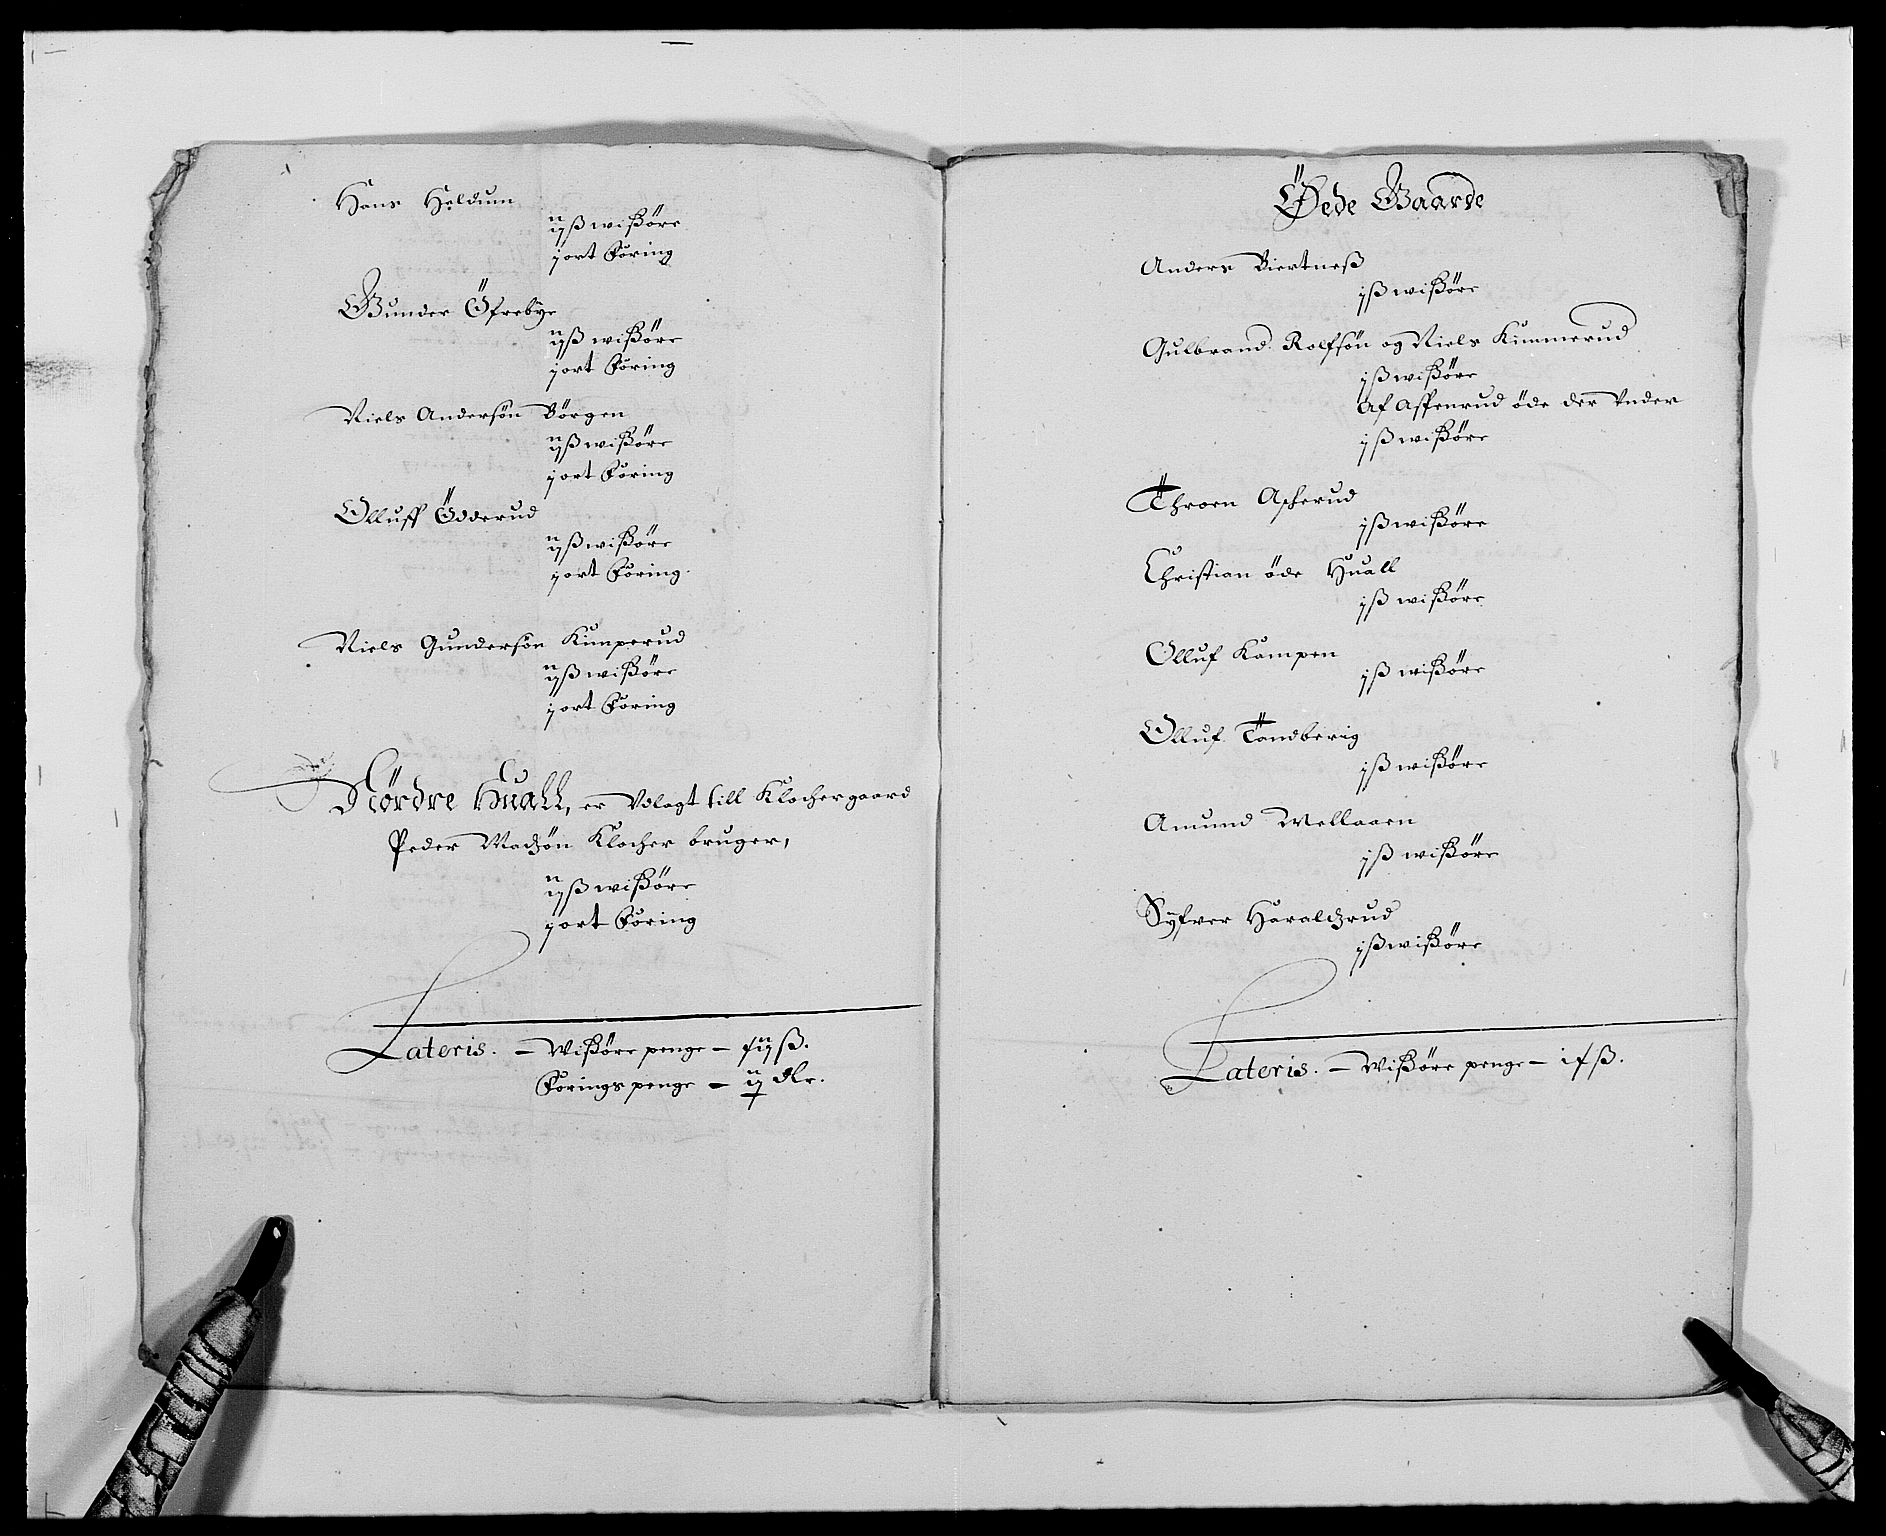 Hans Heldum
ijß wißøre
j ort Føring
Gunder Öfrebye
ijß wißøre
j ort Føring
Niels Andersøn Børgen
ijß wißøre
j ort Føring
Olluff Ödderud
ijß wißøre
j ort Føring
Niels Gundersøn Kimperud
ijß wißøre
j ort Føring
Nørdre Huall, er Udlagt till Klochergaard
Peder Madzøn Klocher bruger,
ijß wißøre
j ort Føring
Lateris. – Wißøre penge – ß.
Førings penge – dlr.
Øede Gaarde
Anders Biertneß
jß wißøre
Gulbrand Rolfsøn og Niels Kimmerud
jß wißøre
Af Aspenrud øde der under
jß wißøre
Throen Ascherud
jß wißøre
Christian øde Huall
jß wißøre
Olluf Kampen
jß wißøre
Olluf Tandberig
jß wißøre
Amund Mellaaen
jß wißøre
Syfver Haraldzrud
jß wißøre
Lateris. – Wißøre penge – ß.